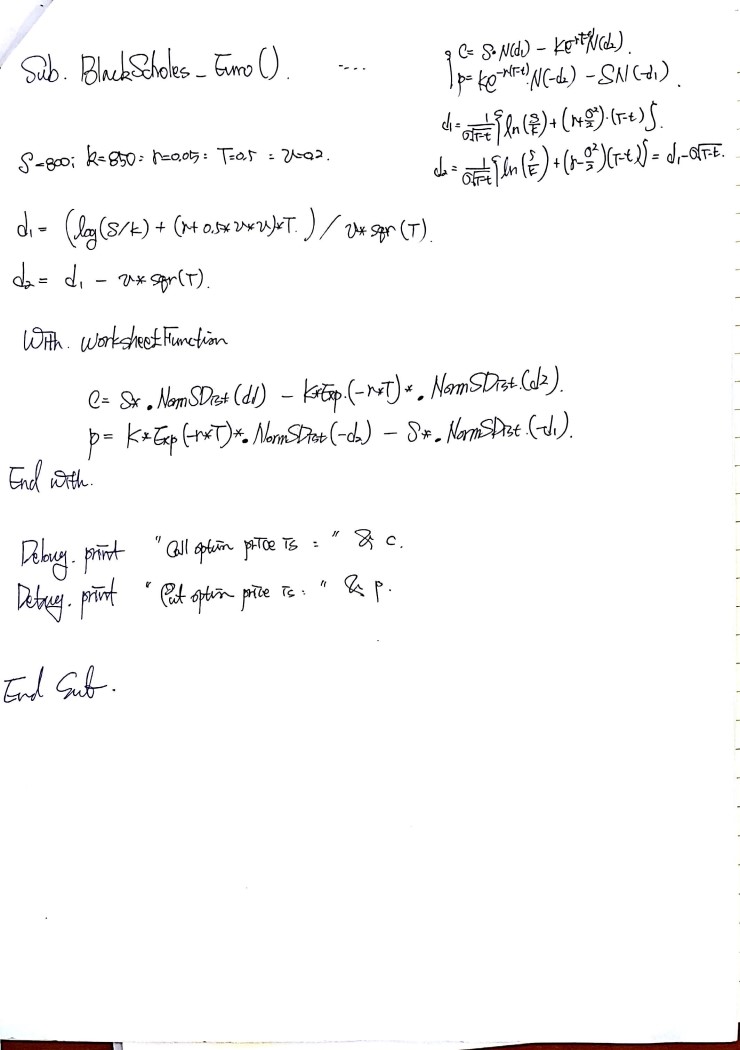 Sub. BlackScholes_Euro(). ....
C = S·N(d1) − Ke^-r(T-t)N(d2).
p = Ke^-r(T-t).N(-d2) − SN(-d1).
d1 = 1/σ√T-t {ln(S/K) + (r+σ²/2)·(T-t)}.
d2 = 1/σ√T-t {ln(S/K) + (r-σ²/2)(T-t)} = d1-σ√T-t.
S=800: K=850: r=0.05: T=0.5 : v=0.2.
d1 = (log(S/K) + (r+0.5*v*v)*T.) / v*sqr(T).
d2 = d1 − v*sqr(T).
With. WorksheetFunction
C = S*.NormSDist(d1) − K*Exp.(-r*T)*.NormSDist.(d2).
p = K*Exp(-r*T)*.NormSDist(-d2) − S*.NormSDist.(-d1).
End with.
Debug.print "Call option price is : " & c.
Debug.print "Put option price is : " & p.
End Sub.